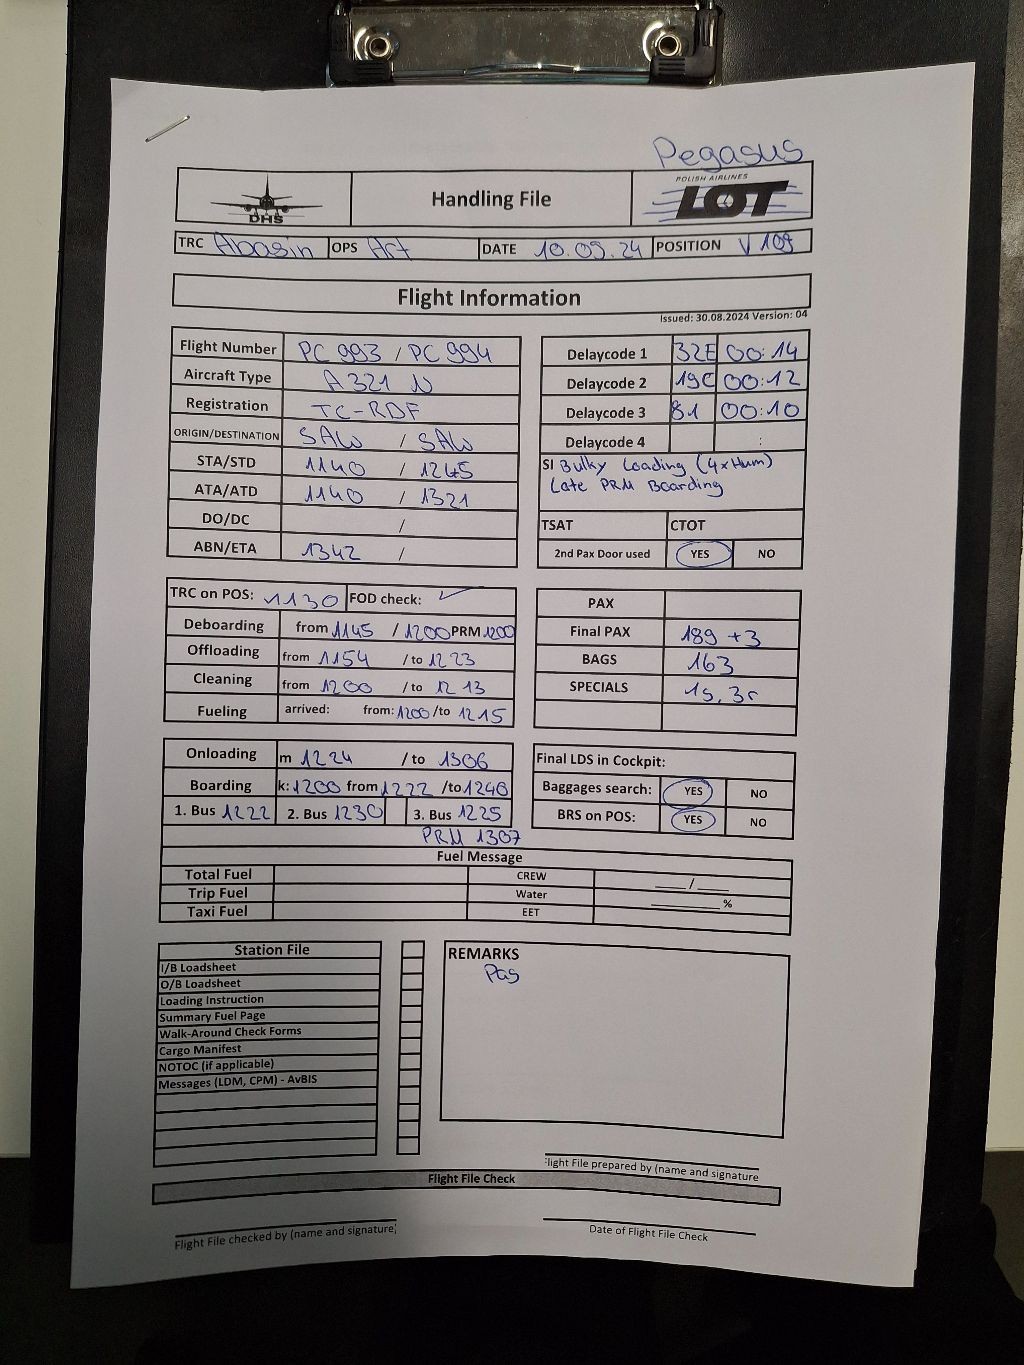 Pegasus
DHS
Handling File
POLISH AIRLINES
LOT
TRC Abasin OPS Art DATE 10.09.24 POSITION V 109
Flight Information
Issued: 30.08.2024 Version: 04
Flight Number PC 993 / PC 994
Aircraft Type A321 N
Registration TC-RDF
ORIGIN/DESTINATION SAW / SAW
STA/STD 1140 / 1245
ATA/ATD 1140 / 1321
DO/DC /
ABN/ETA 1342 /
Delaycode 1 32E 00:14
Delaycode 2 19C 00:12
Delaycode 3 81 00:10
Delaycode 4 :
SI Bulky Loading (4xHum)
Late PRM Boarding
TSAT CTOT
2nd Pax Door used YES NO
TRC on POS: 1130 FOD check: ✓
Deboarding from 1145 / 1200 PRM 1200
Offloading from 1154 / to 1223
Cleaning from 1200 / to 1213
Fueling arrived: from: 1200 / to 1215
PAX
Final PAX 189 +3
BAGS 163
SPECIALS 1s, 3r
Onloading m 1224 / to 1306
Boarding k: 1200 from 1222 / to 1240
1. Bus 1222 2. Bus 1230 3. Bus 1225
PRM 1307
Final LDS in Cockpit:
Baggages search: YES NO
BRS on POS: YES NO
Fuel Message
Total Fuel CREW ___/___
Trip Fuel Water ______%
Taxi Fuel EET
Station File
I/B Loadsheet
O/B Loadsheet
Loading Instruction
Summary Fuel Page
Walk-Around Check Forms
Cargo Manifest
NOTOC (if applicable)
Messages (LDM, CPM) - AvBIS
REMARKS
Pas
Flight File prepared by (name and signature
Flight File Check
Flight File checked by (name and signature)
Date of Flight File Check